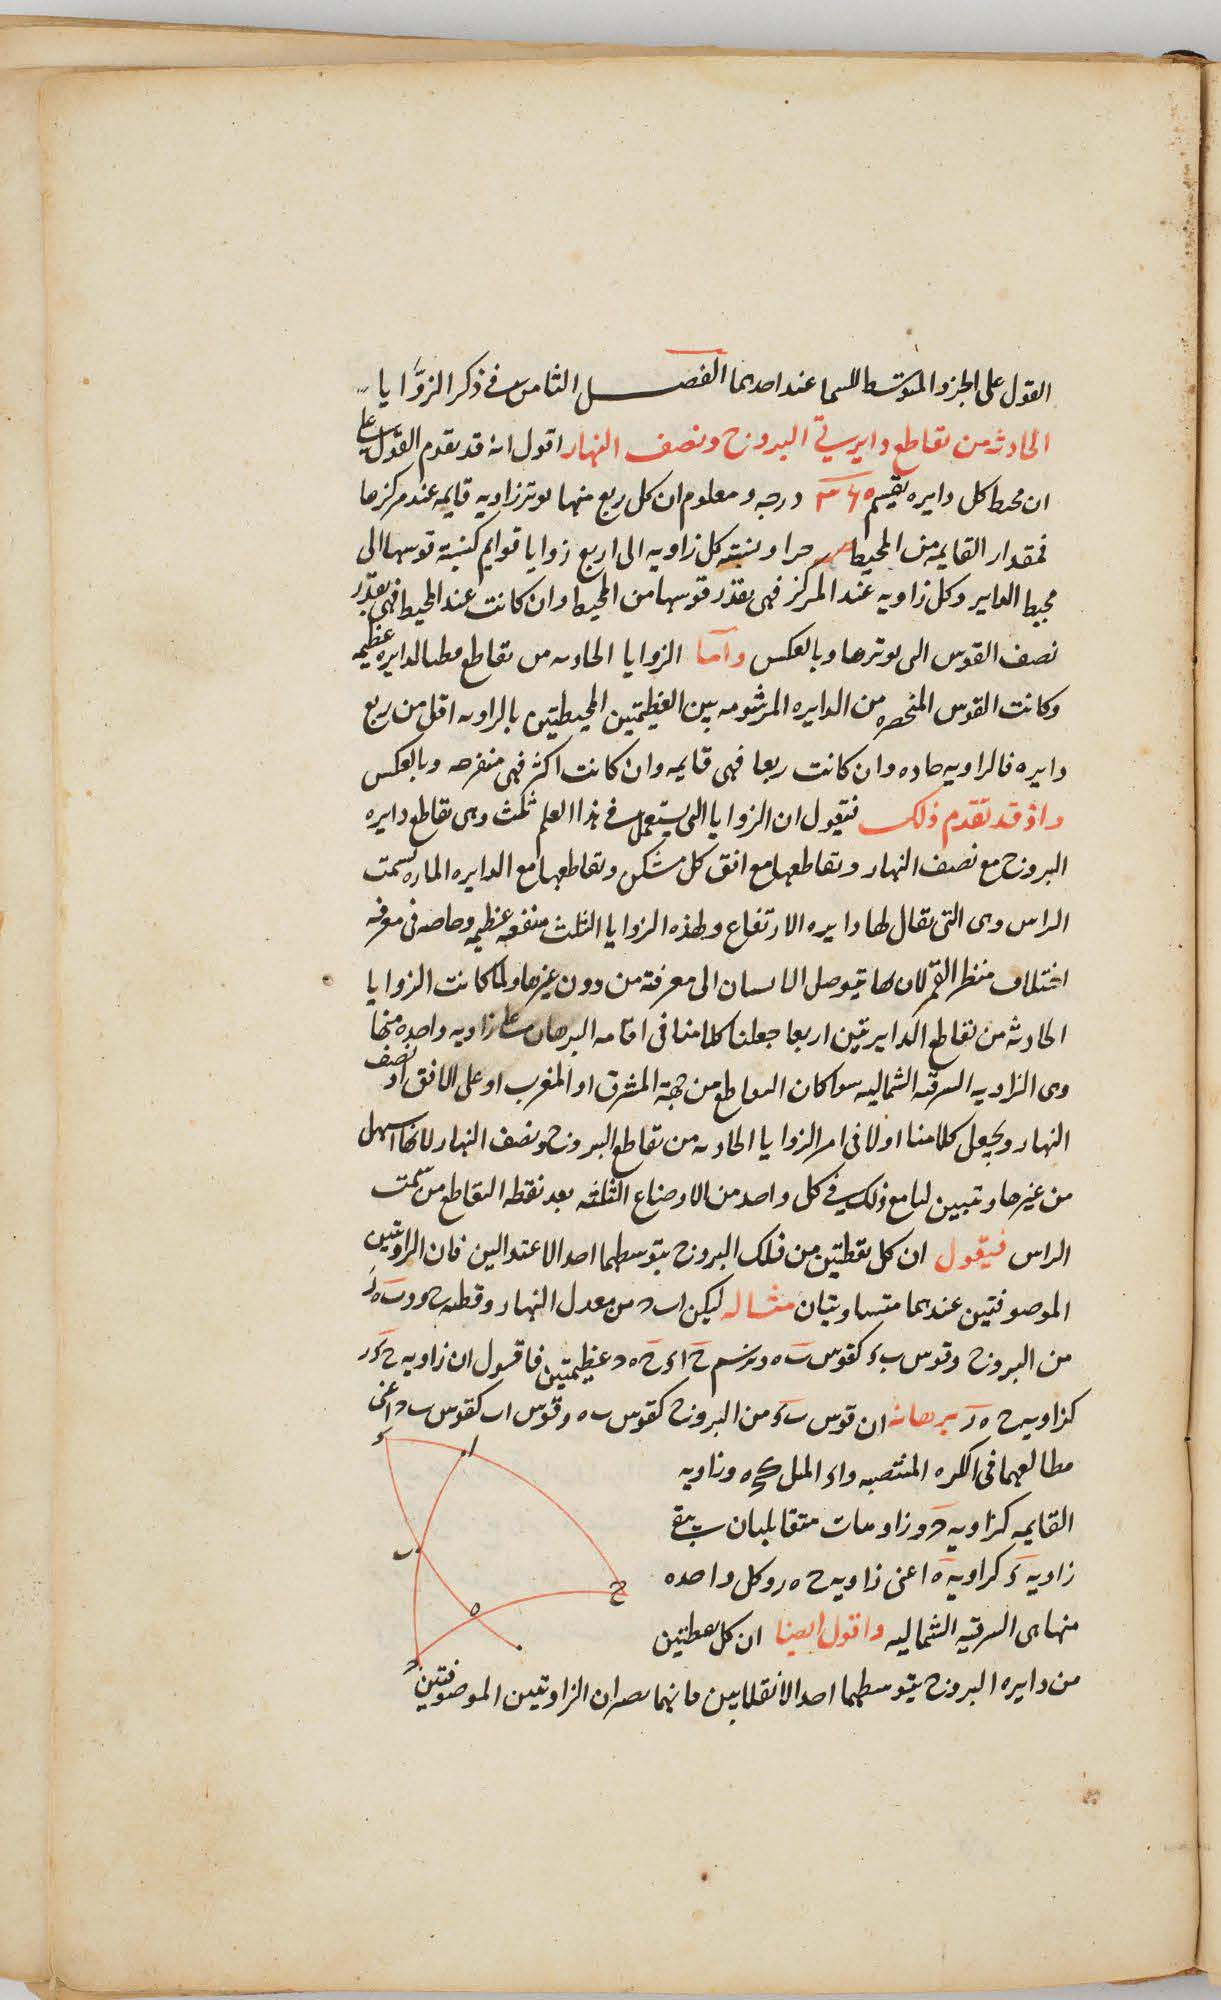 القول على الجزو المتوسط للسما عند احدهما الفصل الثامن في ذكر الزوايا
الحادثة من تقاطع دايرتي البروج ونصف النهار اقول انه قد تقدم القول على
ان محيط كل دايره تقسم درجه ومعلوم ان كل ربع منها يوتر زاويه قايمه عند مركزها
فمقدار القايمه من المحيط ص جزا ونسبة كل زاويه الى اربع زوايا قوايم كنسبة قوسها الى
محيط الداير وكل زاويه عند المركز فهي بقدر قوسها من المحيط وان كانت عند المحيط فهي بقدر
نصف القوس التي يوترها وبالعكس واما الزوايا الحادثه من تقاطع الدايره عظيمه
وكانت القوس المنحصره من الدايره المرسومه بين العظيمتين المحيطتين بالزاويه اقل من ربع
دايره فالزاويه حاده وان كانت ربعا فهي قايمه وان كانت اكثر فهي منفرجه وبالعكس
واذ قد تقدم ذلك فنقول ان الزوايا التي يستعمل في هذا العلم ثلث وهي تقاطع دايره
البروج مع نصف النهار وتقاطعها مع افق كل مسكن وتقاطعها مع الدايره الماره بسمت
الراس وهي التي يقال لها دايره الارتفاع ولهذه الزوايا الثلث منفعه عظيمه وخاصه في معرفه
اختلاف منظر القمر لان بها يتوصل الانسان الى معرفة من دون غيرها ولما كانت الزوايا
الحادثه من تقاطع الدايرتين اربعا جعلنا كلامنا في اقامه البرهان على زاويه واحده منها
وهي الزاويه الشرقيه الشماليه سوا كان التقاطع من جهة المشرق او المغرب او على الافق او نصف
النهار ويجعل كلامنا اولا في امر الزوايا الحادثه من تقاطع البروج ونصف النهار لانها اسهل
من غيرها ويتبين لنا مع ذلك في كل واحد من الاوضاع الثلثه بعد نقطه التقاطع من سمت
الراس فيقول ان كل نقطتين من فلك البروج يتوسطهما احد الاعتدالين فان الزاويتين
الموصوفتين عندهما متساويتان مثاله ليكن من معدل النهار وقطعه
من البروج وقوس ب ء كقوس ب ه ونرسم عظيمتين فاقول ان زاويه
كزاويه ح ه ر برهانه ان قوس ب ء من البروج كقوس ب ه وقوس اب كقوس اعني
مطالعهما في الكره المنتصبه واء الميل وزاويه
القايمه كزاويه وزاويتا ب متقابلتان يبقى
زاويه ء كزاويه ه اعني زاويه ح ه ر وكل واحده
منها هي الشرقيه الشماليه واقول ايضا ان كل نقطتين
من دايره البروج يتوسطهما احد الانقلابين فانهما يصيران الزاويتين الموصوفتين
ء
ا
ب
ح
ه